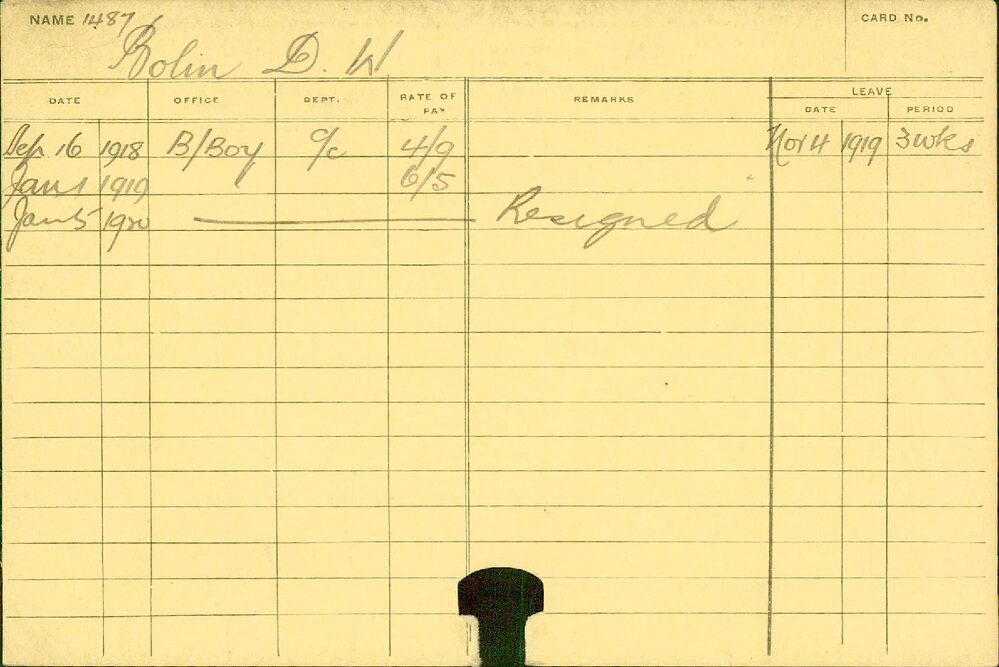 NAME 1487
CARD No.
Rolin D. W
DATE OFFICE DEPT. RATE OF PAY REMARKS LEAVE
DATE PERIOD
Sep 16 1918 B/Boy 4/9 Nov 4 1919 3 wks
Jan 1 1919 6/5
Jan 5 1920 Resigned